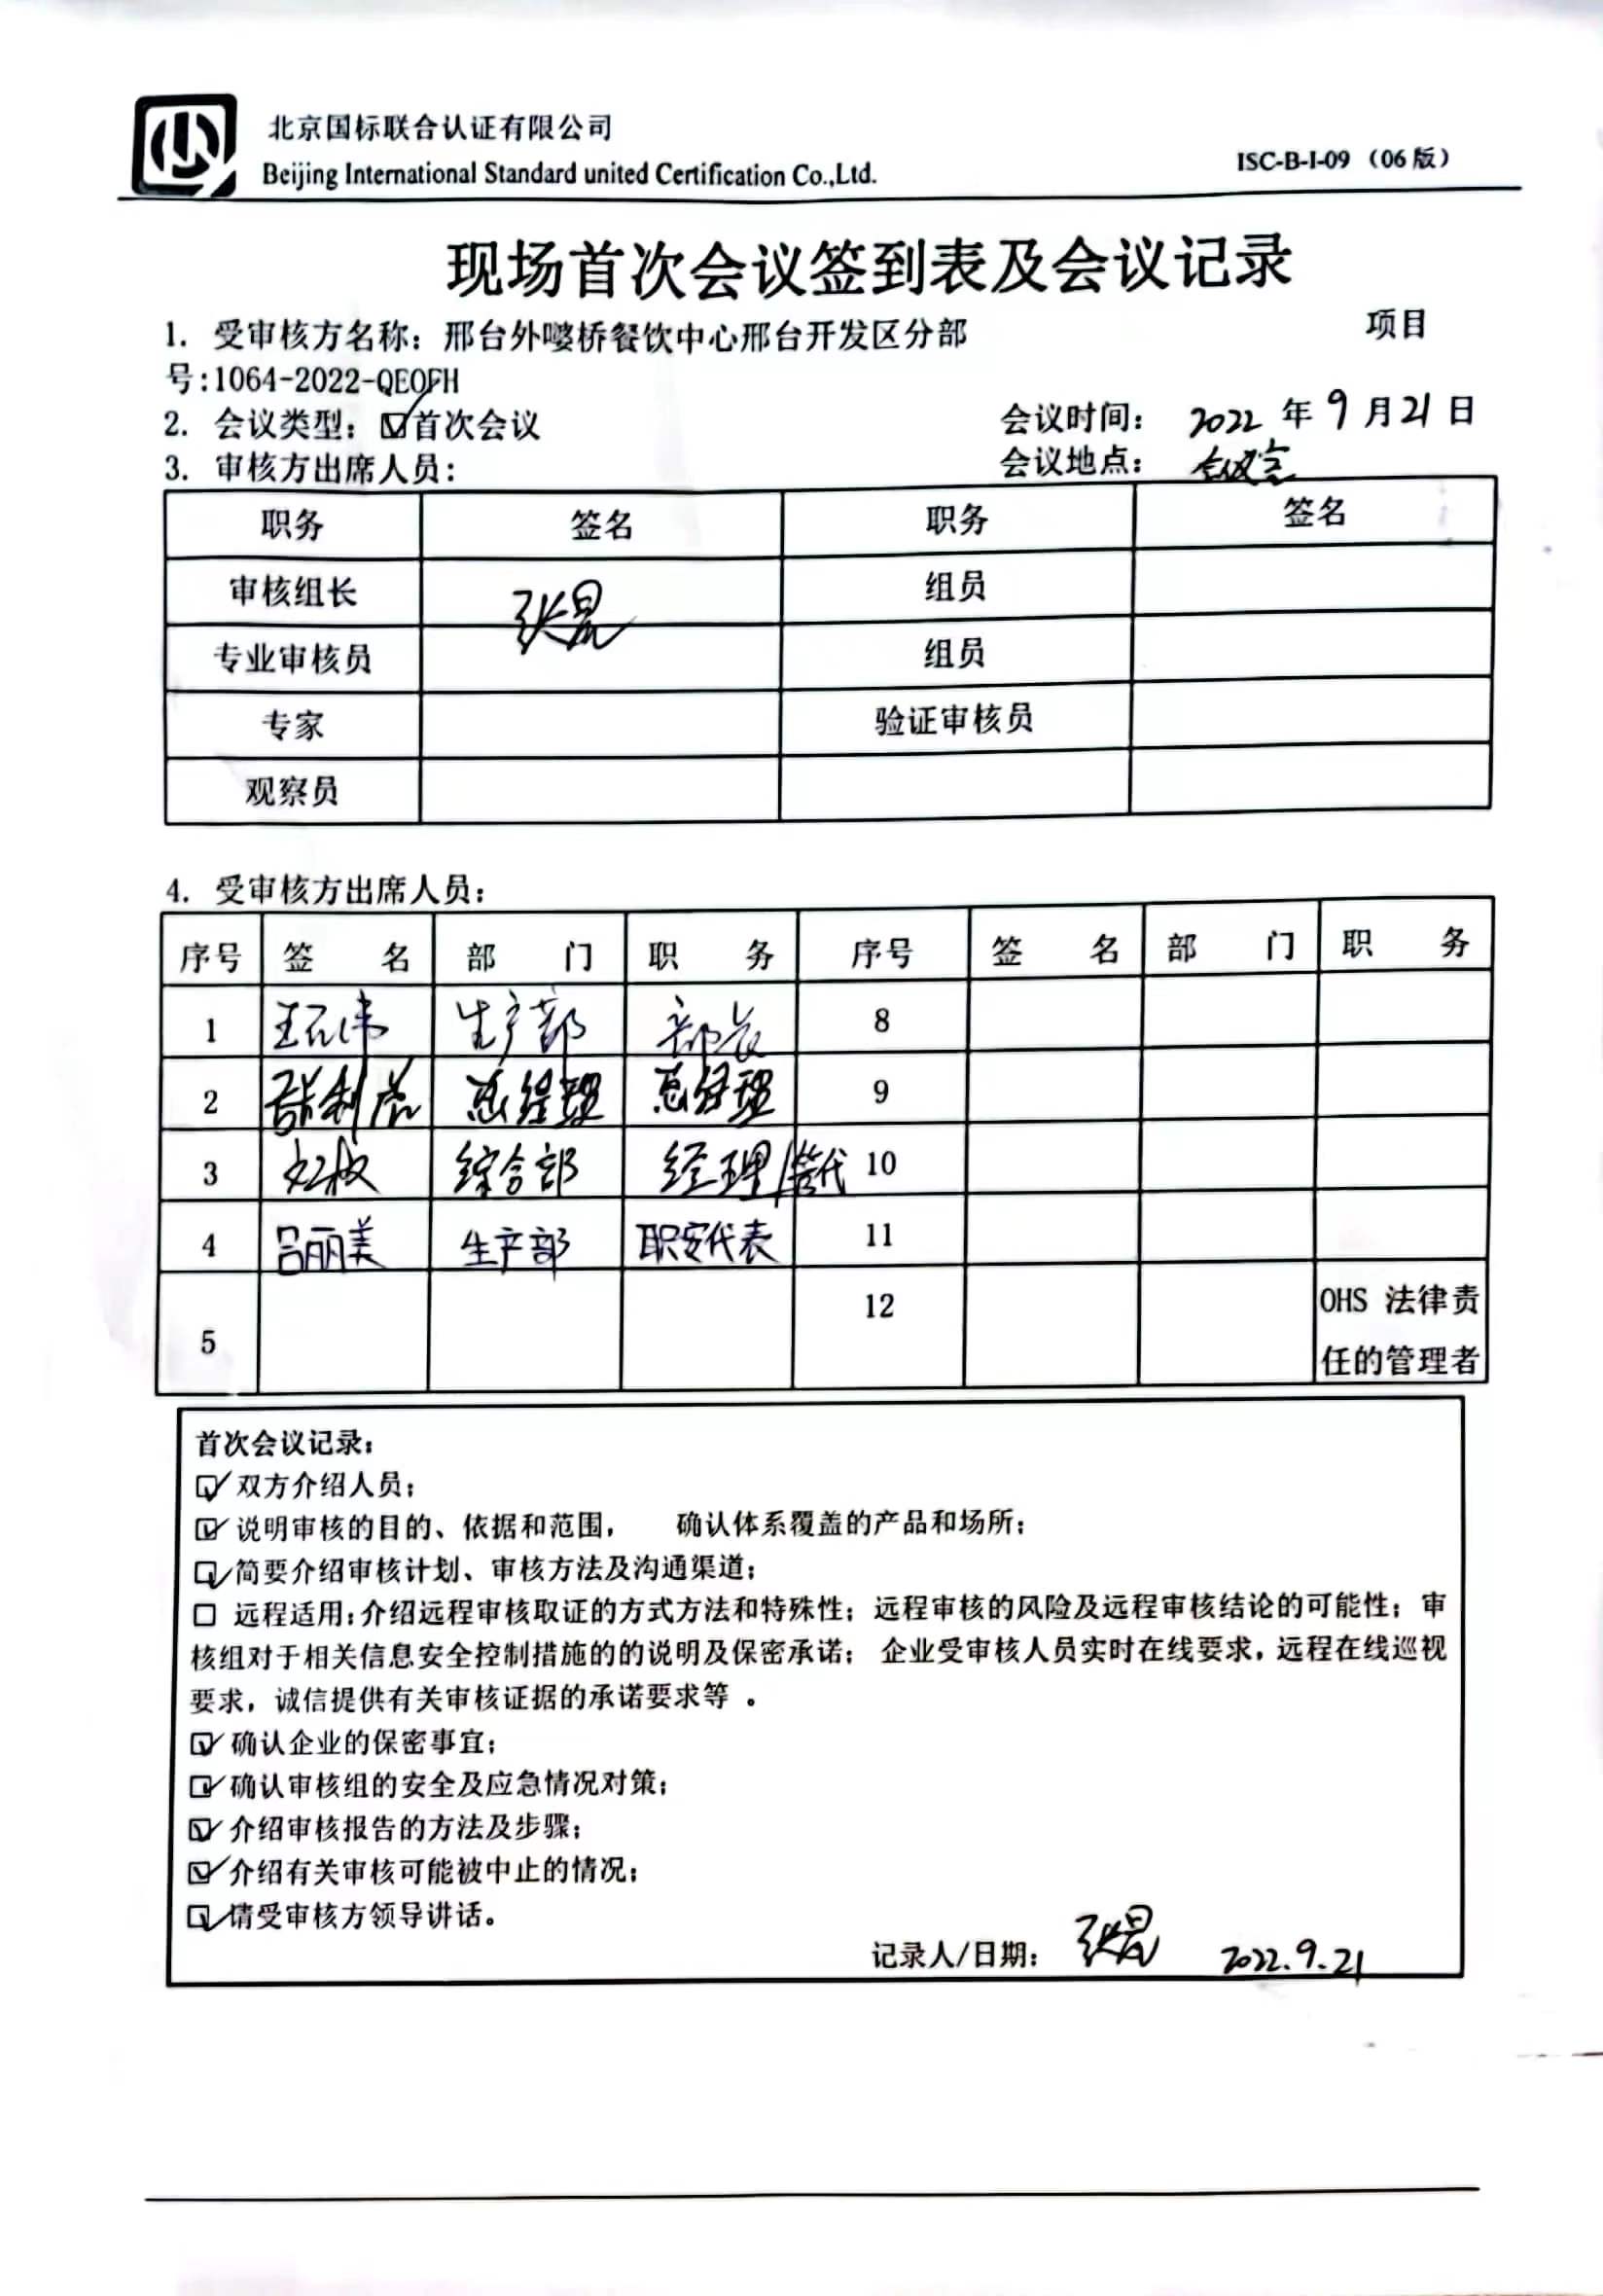 北京国标联合认证有限公司
Beijing International Standard united Certification Co.,Ltd.
ISC-B-I-09 （06 版）
现场首次会议签到表及会议记录
1. 受审核方名称：邢台外嘤桥餐饮中心邢台开发区分部 项目
号:1064-2022-QEOFH
2. 会议类型：☑首次会议 会议时间： 2022 年 9 月 21 日
3. 审核方出席人员： 会议地点： 会议室
职务 签名 职务 签名
审核组长 张晃 组员
专业审核员 组员
专家 验证审核员
观察员
4. 受审核方出席人员：
序号 签 名 部 门 职 务 序号 签 名 部 门 职 务
1 生产部 部长 8
2 总经理 总经理 9
3 综合部 经理/管代 10
4 吕丽美 生产部 职安代表 11
5 12 OHS 法律责
任的管理者
首次会议记录：
☑ 双方介绍人员；
☑ 说明审核的目的、依据和范围， 确认体系覆盖的产品和场所；
☑ 简要介绍审核计划、审核方法及沟通渠道；
□ 远程适用：介绍远程审核取证的方式方法和特殊性；远程审核的风险及远程审核结论的可能性；审
核组对于相关信息安全控制措施的的说明及保密承诺； 企业受审核人员实时在线要求，远程在线巡视
要求，诚信提供有关审核证据的承诺要求等 。
☑ 确认企业的保密事宜；
☑ 确认审核组的安全及应急情况对策；
☑ 介绍审核报告的方法及步骤；
☑ 介绍有关审核可能被中止的情况；
☑ 请受审核方领导讲话。
记录人/日期： 张晃 2022.9.21